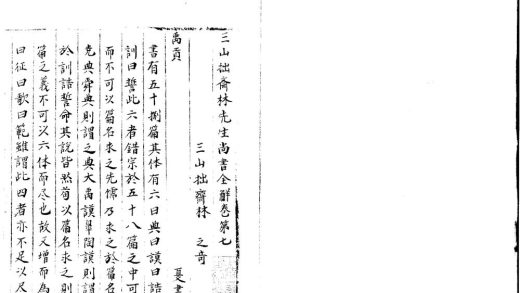 三山拙齋林先生尚書全解卷第七
三山拙齋林 之奇
禹貢 夏書
書有五十捌篇其体有六曰典曰謨曰誥
訓曰誓此六者錯宗於五十八篇之中可
而不可以篇名求之先儒乃求之於篇名
堯典舜典則謂之典大禹謨皐陶謨則謂
於訓誥誓命其說皆然苟以篇名求之則
篇之義不可以六体而尽也故又增而為
曰征曰歌曰範雖謂此四者亦不足以尽